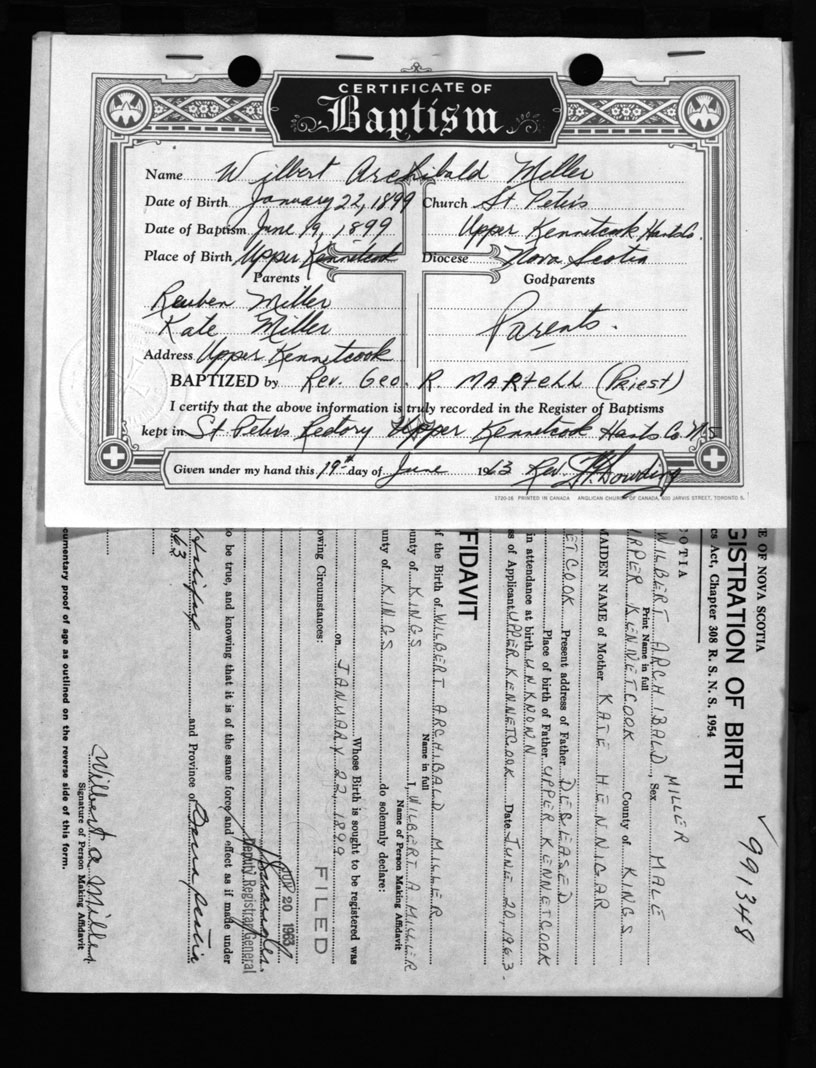 CERTIFICATE OF
Baptism
Name Wilbert Archibald Miller
Date of Birth January 22, 1899 Church St Peters
Date of Baptism June 19, 1899 Upper Kennetcook Hants Co.
Place of Birth Upper Kennetcook Diocese Nova Scotia
Parents Godparents
Reuben Miller
Kate Miller Parents.
Address Upper Kennetcook
BAPTIZED by Rev. Geo. R. Martell (Priest)
I certify that the above information is truly recorded in the Register of Baptisms
kept in St Peters Rectory Upper Kennetcook Hants Co. N.S
Given under my hand this 19th day of June 1963 Rev.
1720-56 PRINTED IN CANADA ANGLICAN CHURCH OF CANADA, 600 JARVIS STREET, TORONTO 5.
991348
E OF NOVA SCOTIA
GISTRATION OF BIRTH
cs Act, Chapter 308 R. S. N. S. 1954
COTIA
MILLER
WILBERT ARCHIBALD, Sex MALE
Print Name in full
PPER KENNETCOOK County of KINGS
MAIDEN NAME of Mother KATE HENNIGAR
ETCOOK Present address of Father DECEASED
Place of birth of Father UPPER KENNETCOOK
in attendance at birth UNKNOWN
s of Applicant UPPER KENNETCOOK Date JUNE 20, 1963.
FIDAVIT
f the Birth of WILBERT ARCHIBALD MILLER
Name in full
ounty of KINGS I, WILBERT A. MILLER
Name of Person Making Affidavit
unty of KINGS do solemnly declare:
Whose Birth is sought to be registered was
on JANUARY 22, 1899
owing Circumstances: FILED
JUN 20 1963
Deputy Registrar General
o be true, and knowing that it is of the same force and effect as if made under
Halifax and Province of Nova Scotia
963
Wilbert A Miller
Signature of Person Making Affidavit
cumentary proof of age as outlined on the reverse side of this form.